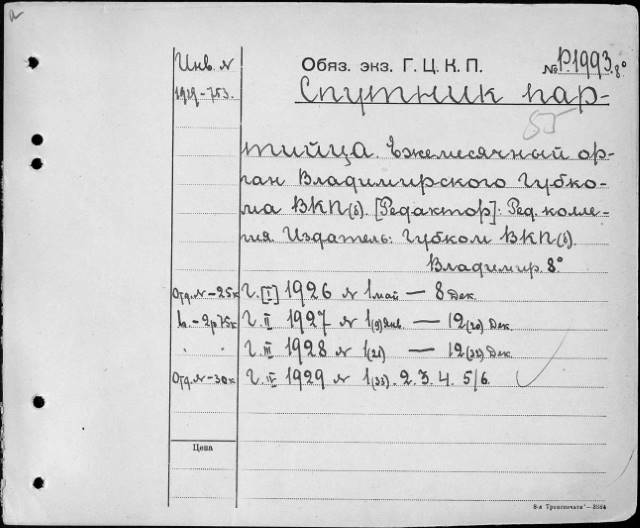 а
Инв. N
1929-753.
Обяз. экз. Г. Ц. К. П.
№ Р1993.8°
Спутник пар-
85
тийца. Ежемесячный ор-
ган Владимирского Губко-
ма ВКП(б). [Редактор]: Ред. колле-
гия Издатель: Губком ВКП(б).
Владимир. 8°
Отд. N-25к Г. [I] 1926 N 1 май — 8 Дек.
1г.-2р75к Г. II 1927 N 1(9) Янв. — 12(20) Дек.
" " Г. III 1928 N 1(21) — 12(32) Дек.
Отд. N-30к Г. IV 1929 N 1(33). 2. 3. 4. 5/6.
Цена